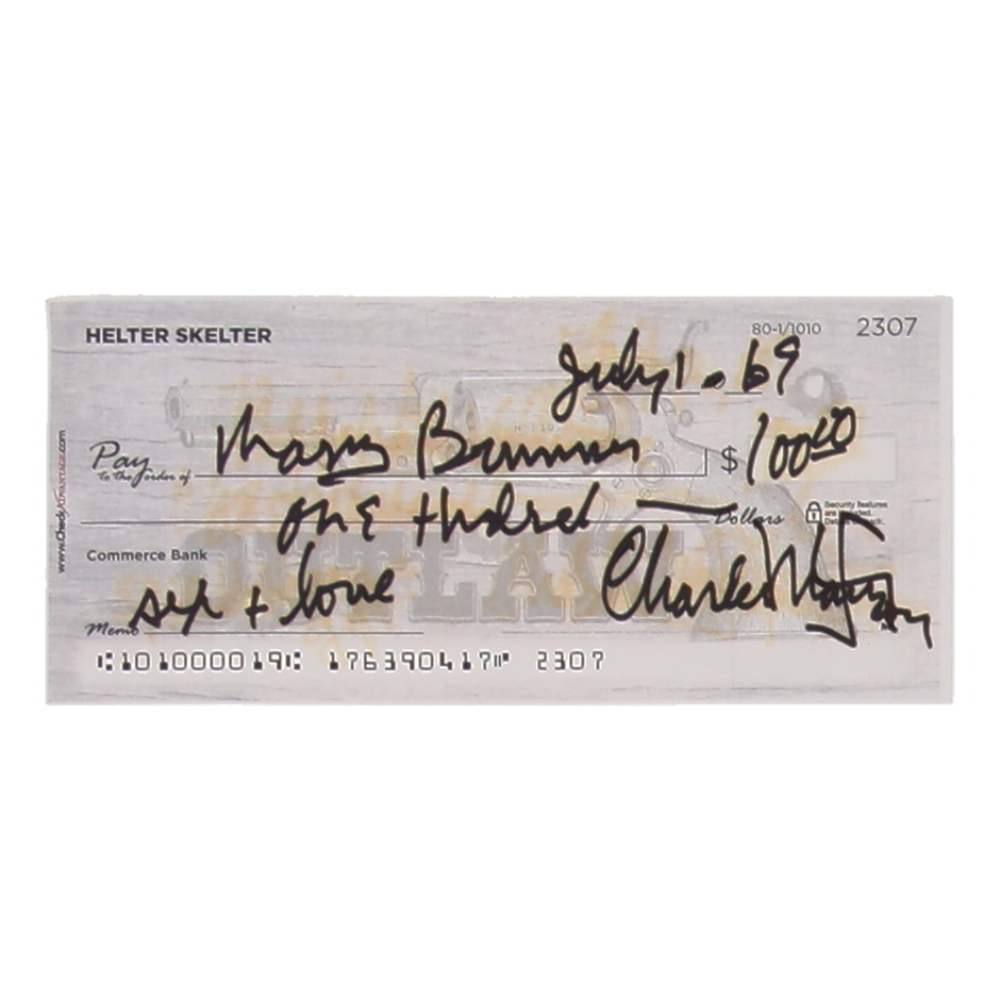 HELTER SKELTER
80-1/1010 2307
July 1. 69
Pay to the order of Mary Brunner $ 100 00
one Hundred — Dollars
Security features
Commerce Bank
OUTLAW
Memo sex + love
⑆101000019⑆ 176390417⑈ 2307
www.CheckAdvantage.com